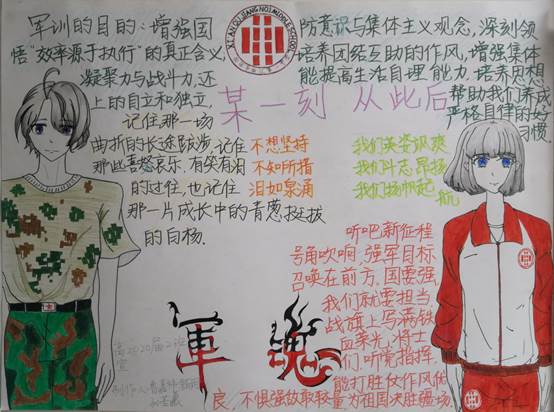 军训的目的：增强国
防意识与集体主义观念，深刻领
悟“效率源于执行”的真正含义，
培养团结互助的作风，增强集体
凝聚力与战斗力，还
能提高生活自理能力，培养思想
上的自立和独立，
帮助我们养成
严格自律的好
习惯.
XI'AN QUJIANG NO.1 MIDDLE SCHOOL
某一刻 从此后
记住那一场
曲折的长途跋涉，记住
那些喜怒哀乐，有笑有泪
的过往，也记住
那一片成长中的青葱挺拔
的白杨.
不想坚持
不知所措
泪如泉涌
我们英姿飒爽
我们斗志昂扬
我们扬帆起
航
听吧新征程
号角吹响，强军目标
召唤在前方，国要强，
我们就要担当，
战旗上写满铁
血荣光，将士
们，听党指挥，
能打胜仗，作风优
良，不惧强敌敢较量，为祖国决胜疆场
軍魂
高2020届2班
制作人